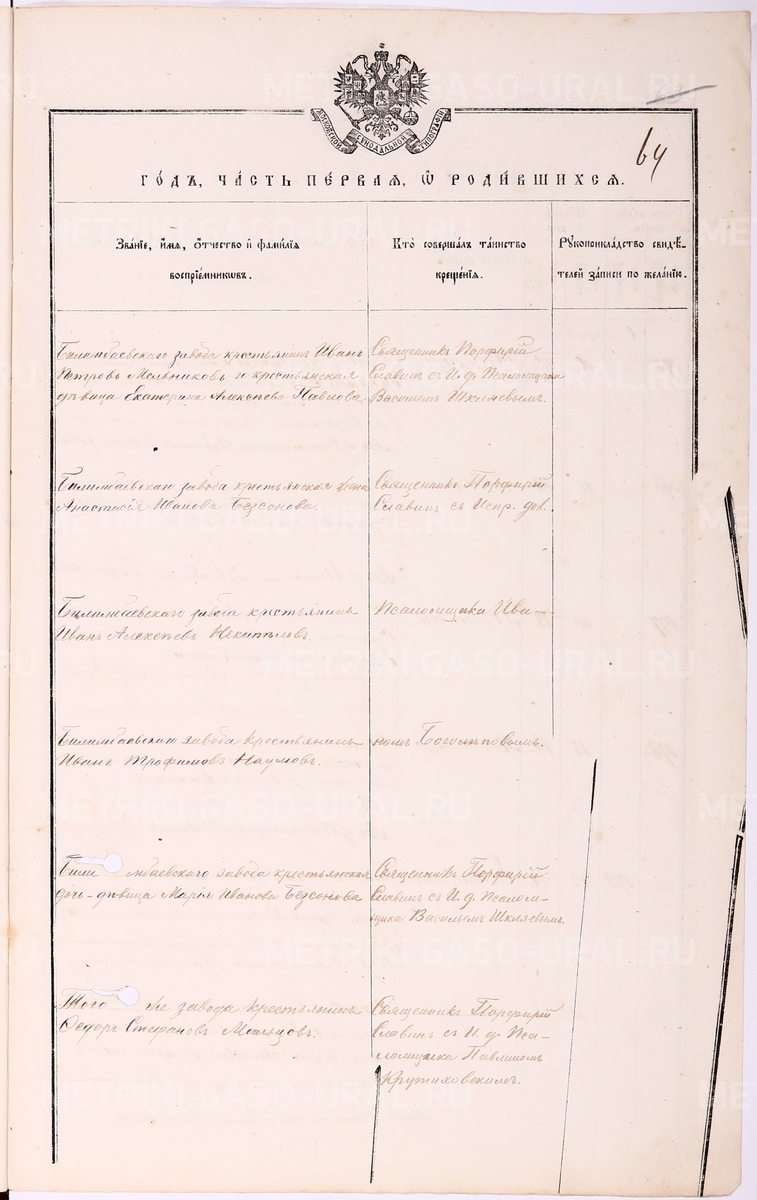 МОСКОВСКОЙ СѴНОДАЛЬНОЙ ТИПОГРАФІИ
64
ГО́ДЪ, ЧА́СТЬ ПЕ́РВАЯ, Ѿ РОДИ́ВШИХСЯ.
Зва́нїе, и҆́мѧ, ѻ҆́тчество и҆ фами́лїѧ
воспрїе́мниковъ.
Кто̀ соверша́лъ та́инство
креще́нїѧ.
Рꙋкоприкла́дство свидѣ́-
телей за́писи по жела́нїю.
Билимбаевскаго завода крестьянинъ Иванъ
Петровъ Мельниковъ и крестьянская
дѣвица Екатерина Алексѣева Павлова
Священникъ Порфирій
Славинъ съ И. д. Псаломщика
Васильемъ Шкляевымъ.
Билимбаевскаго завода крестьянская жена
Анастасія Иванова Безсонова.
Священникъ Порфирій
Славинъ съ Испр. дол.
Билимбаевскаго завода крестьянинъ
Иванъ Алексѣевъ
Псаломщика Ива-
Билимбаевскаго завода крестьянинъ
Иванъ Трофимовъ Наумовъ.
номъ Боголѣповымъ.
Билимбаевскаго завода крестьянская
дочь-дѣвица Марія Иванова Безсонова
Священникъ Порфирій
Славинъ съ И. д. Псалом-
щика Васильемъ Шкляевымъ.
Того же завода крестьянинъ
Ѳедоръ Стефановъ Мальцовъ.
Священникъ Порфирій
Славинъ съ И. д. Пса-
ломщика Павлиномъ
Крутиховскимъ.
METRIKI.GASO-URAL.RU